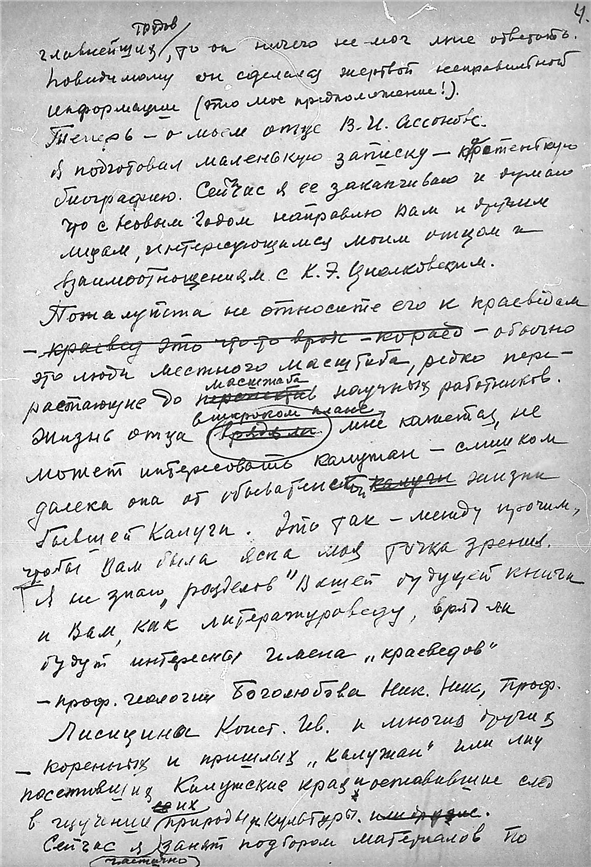 4.
трудов
главнейших, то он ничего не мог мне ответить.
Повидимому он сделался жертвой неправильной
информации (это мое предположение!).
Теперь – о моем отце В.И. Ассонове.
Я подготовил маленькую записку – кратенькую
биографию. Сейчас я ее заканчиваю и думаю
что с Новым Годом направлю Вам и другим
лицам, интересующимся моим отцом и
взаимоотношениям с К.Э. Циолковским.
Пожалуйста не относите его к краеведам
– краевед это что то вроде – короед – обычно
это люди местного масштаба, редко пере-
масштаба
растающие до научных работников.
в широком плане,
Жизнь отца вряд ли мне кажется, не
может интересовать калужан – слишком
далека она от обывательской Калуги жизни
бывшей Калуги. Это так – между прочим,
чтобы Вам была ясна моя точка зрения.
Я не знаю „разделов" Вашей будущей книги
и Вам, как литературоведу, вряд ли
будут интересны имена „краеведов"
– проф. геологии Боголюбова Ник. Ник, Проф.
Лисицина Конст. Ив. и многих других
– коренных и пришлых „калужан" или лиц
посетивших Калужские края и оставившие след
их
в изучении природы и культуры.
Сейчас я занят подбором материалов по
частично